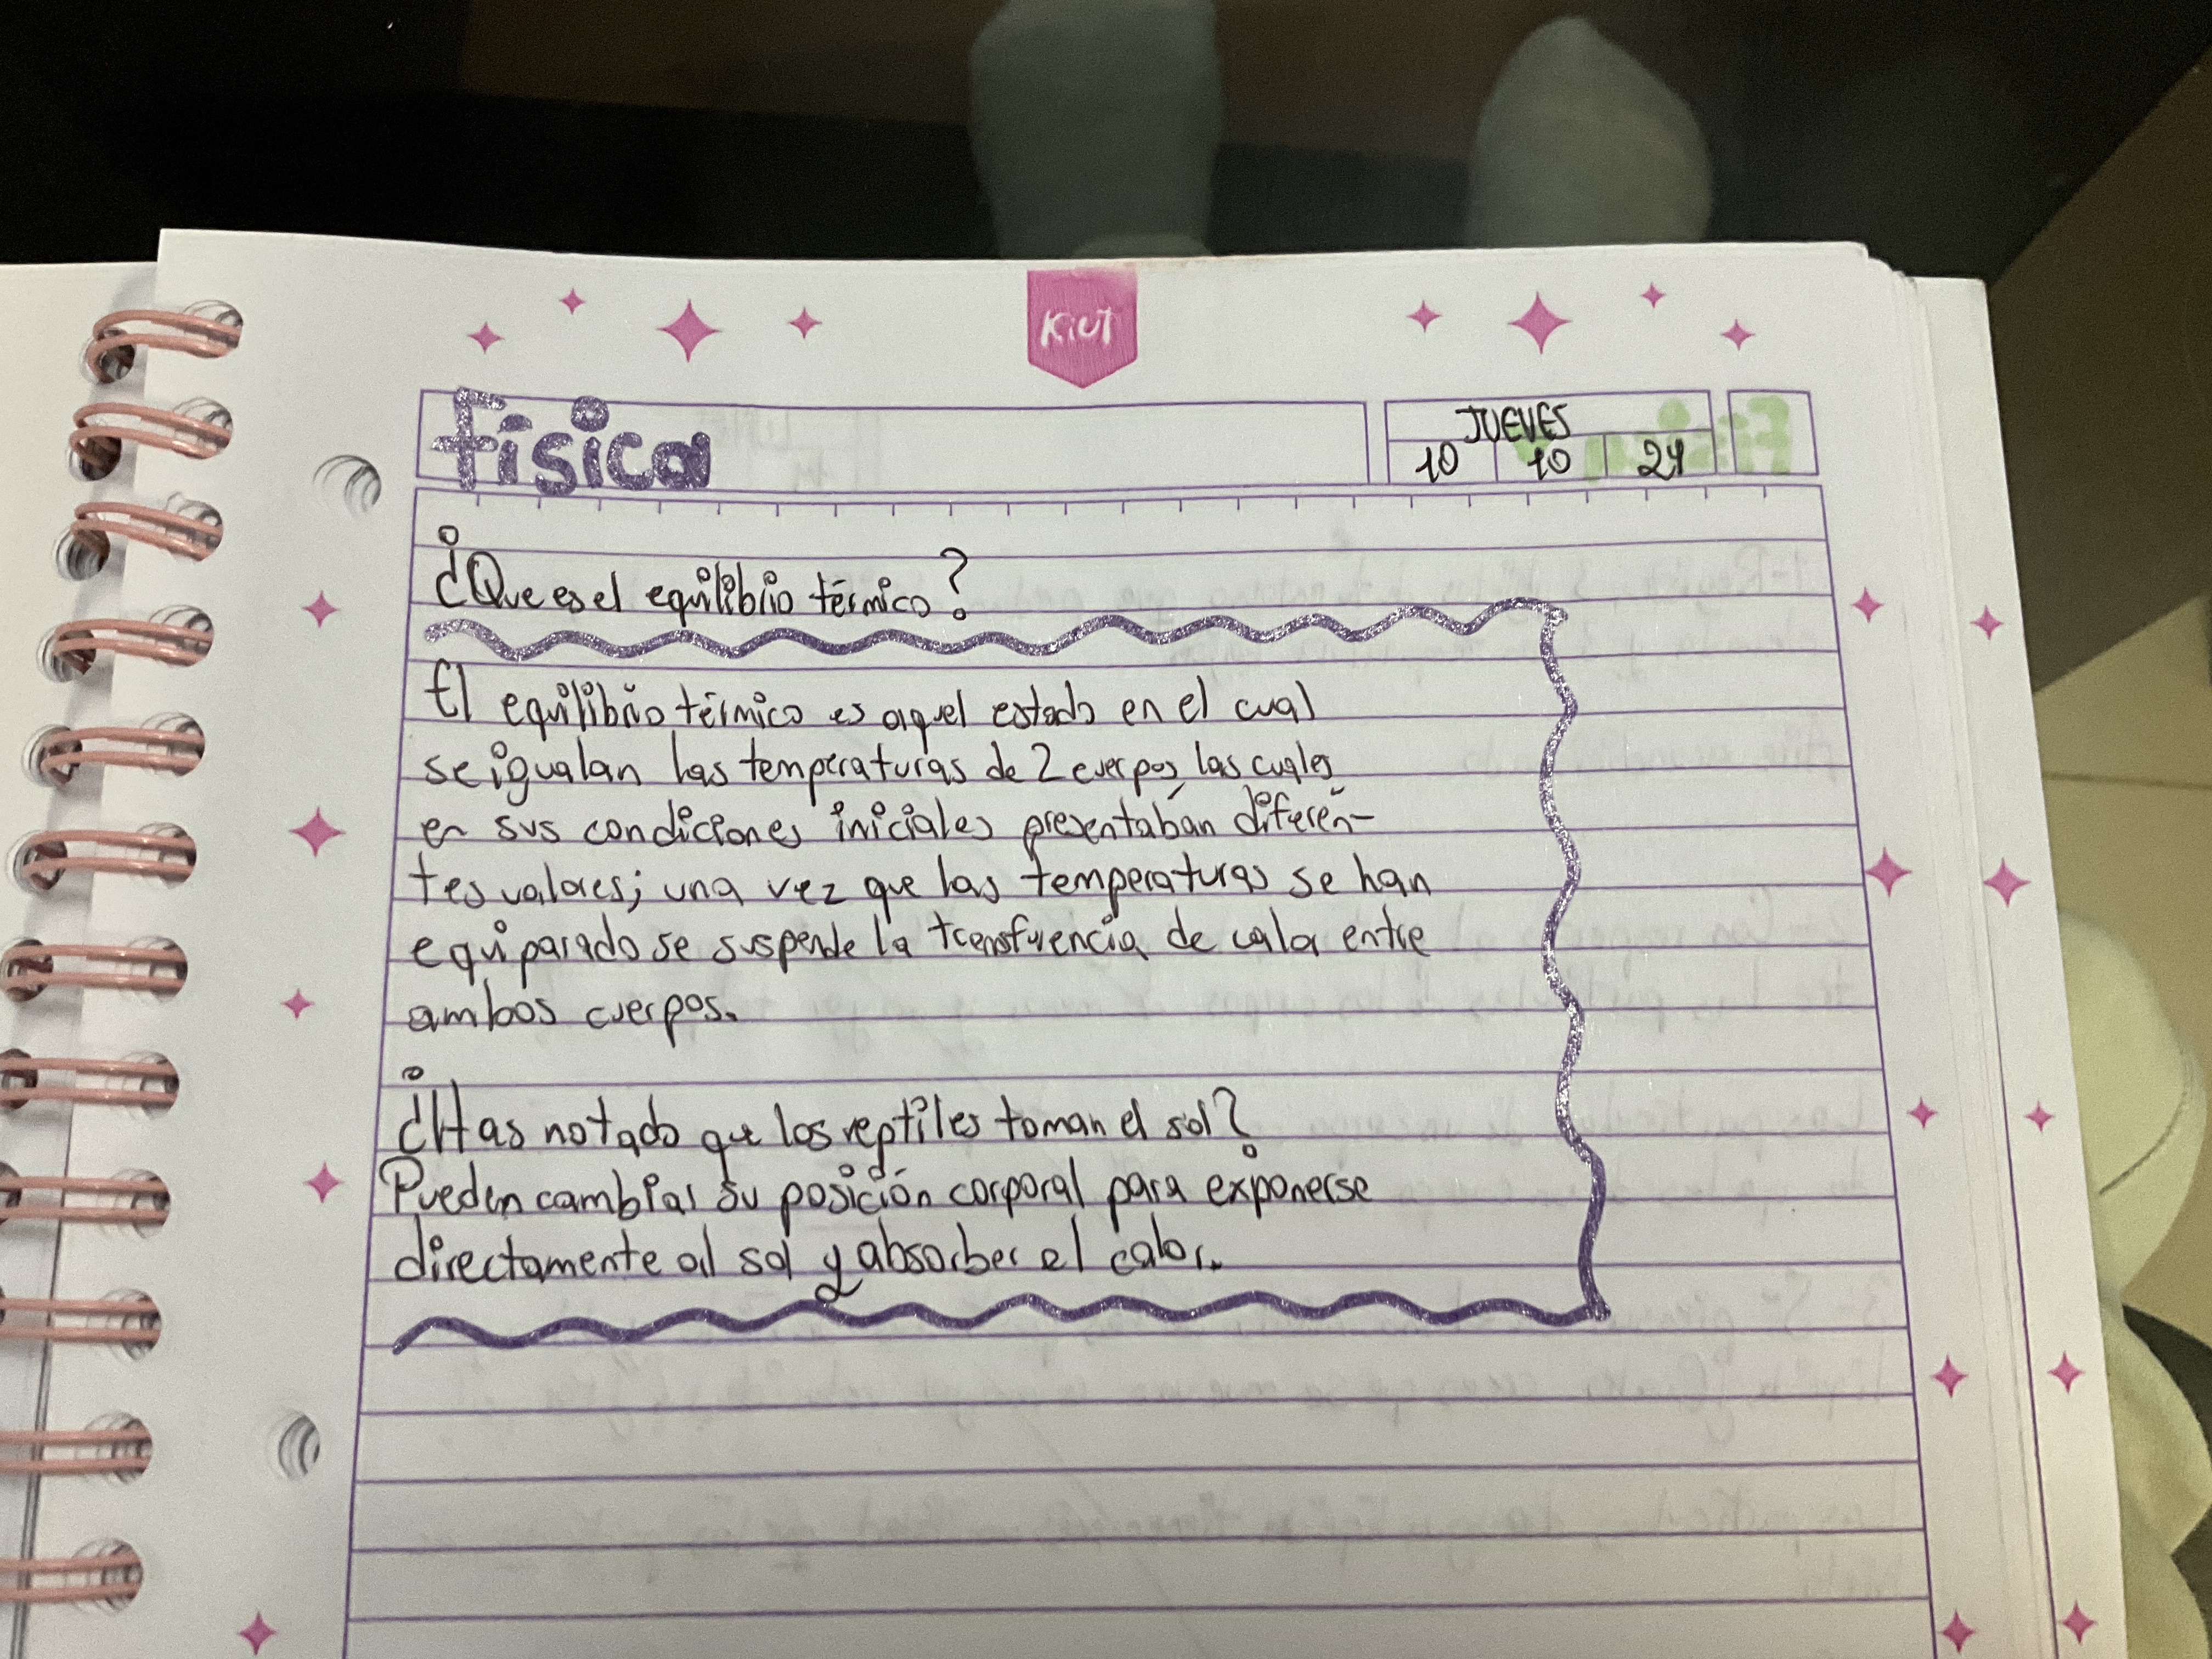 KiUT
física
JUEVES
10 10 24
¿Que es el equilibrio térmico?
El equilibrio térmico es aquel estado en el cual
se igualan las temperaturas de 2 cuerpos, las cuales
en sus condiciones iniciales presentában diferén-
tes valores; una vez que las temperaturas se han
equiparado se suspende la transfuencia de calor entre
ambos cuerpos.
¿Has notado que los reptiles toman el sol?
Pueden cambiar su posición corporal para exponerse
directamente al sol y absorber el calor.